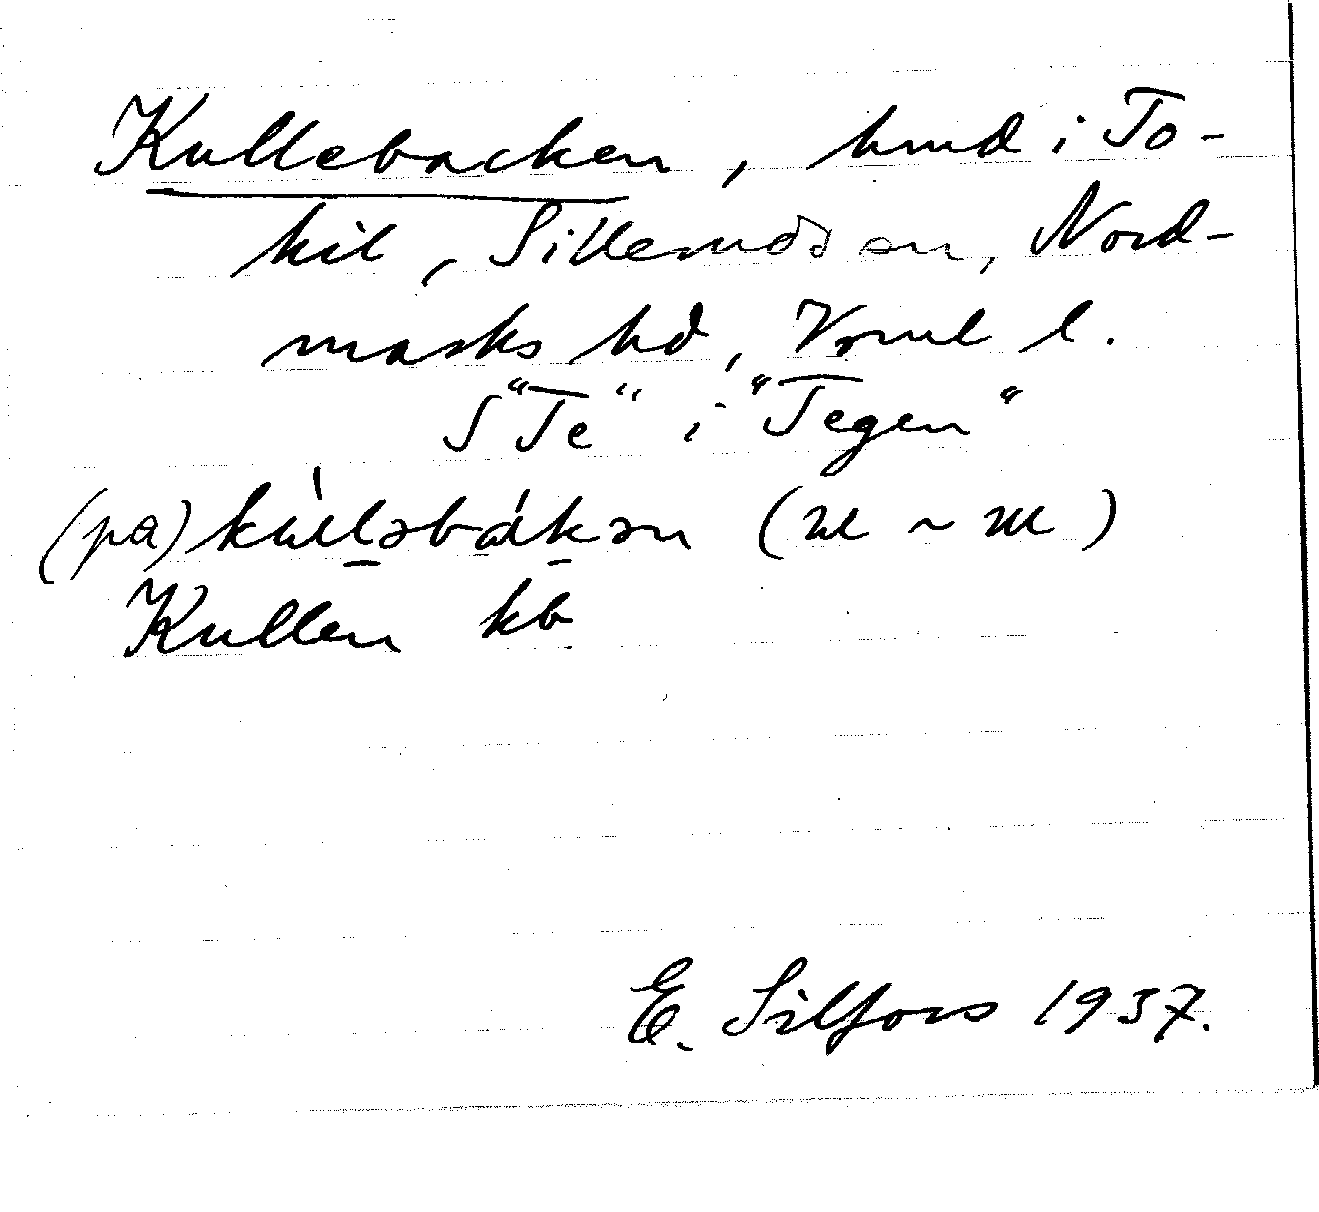 Kullebacken, hmd i To-
kil, Sillerudsön, Nord-
marks hd, Vrml l.
S "Te" i "Tegen"
(pa) kùlləbákən (
Kullen kb
E. Silfors 1937.